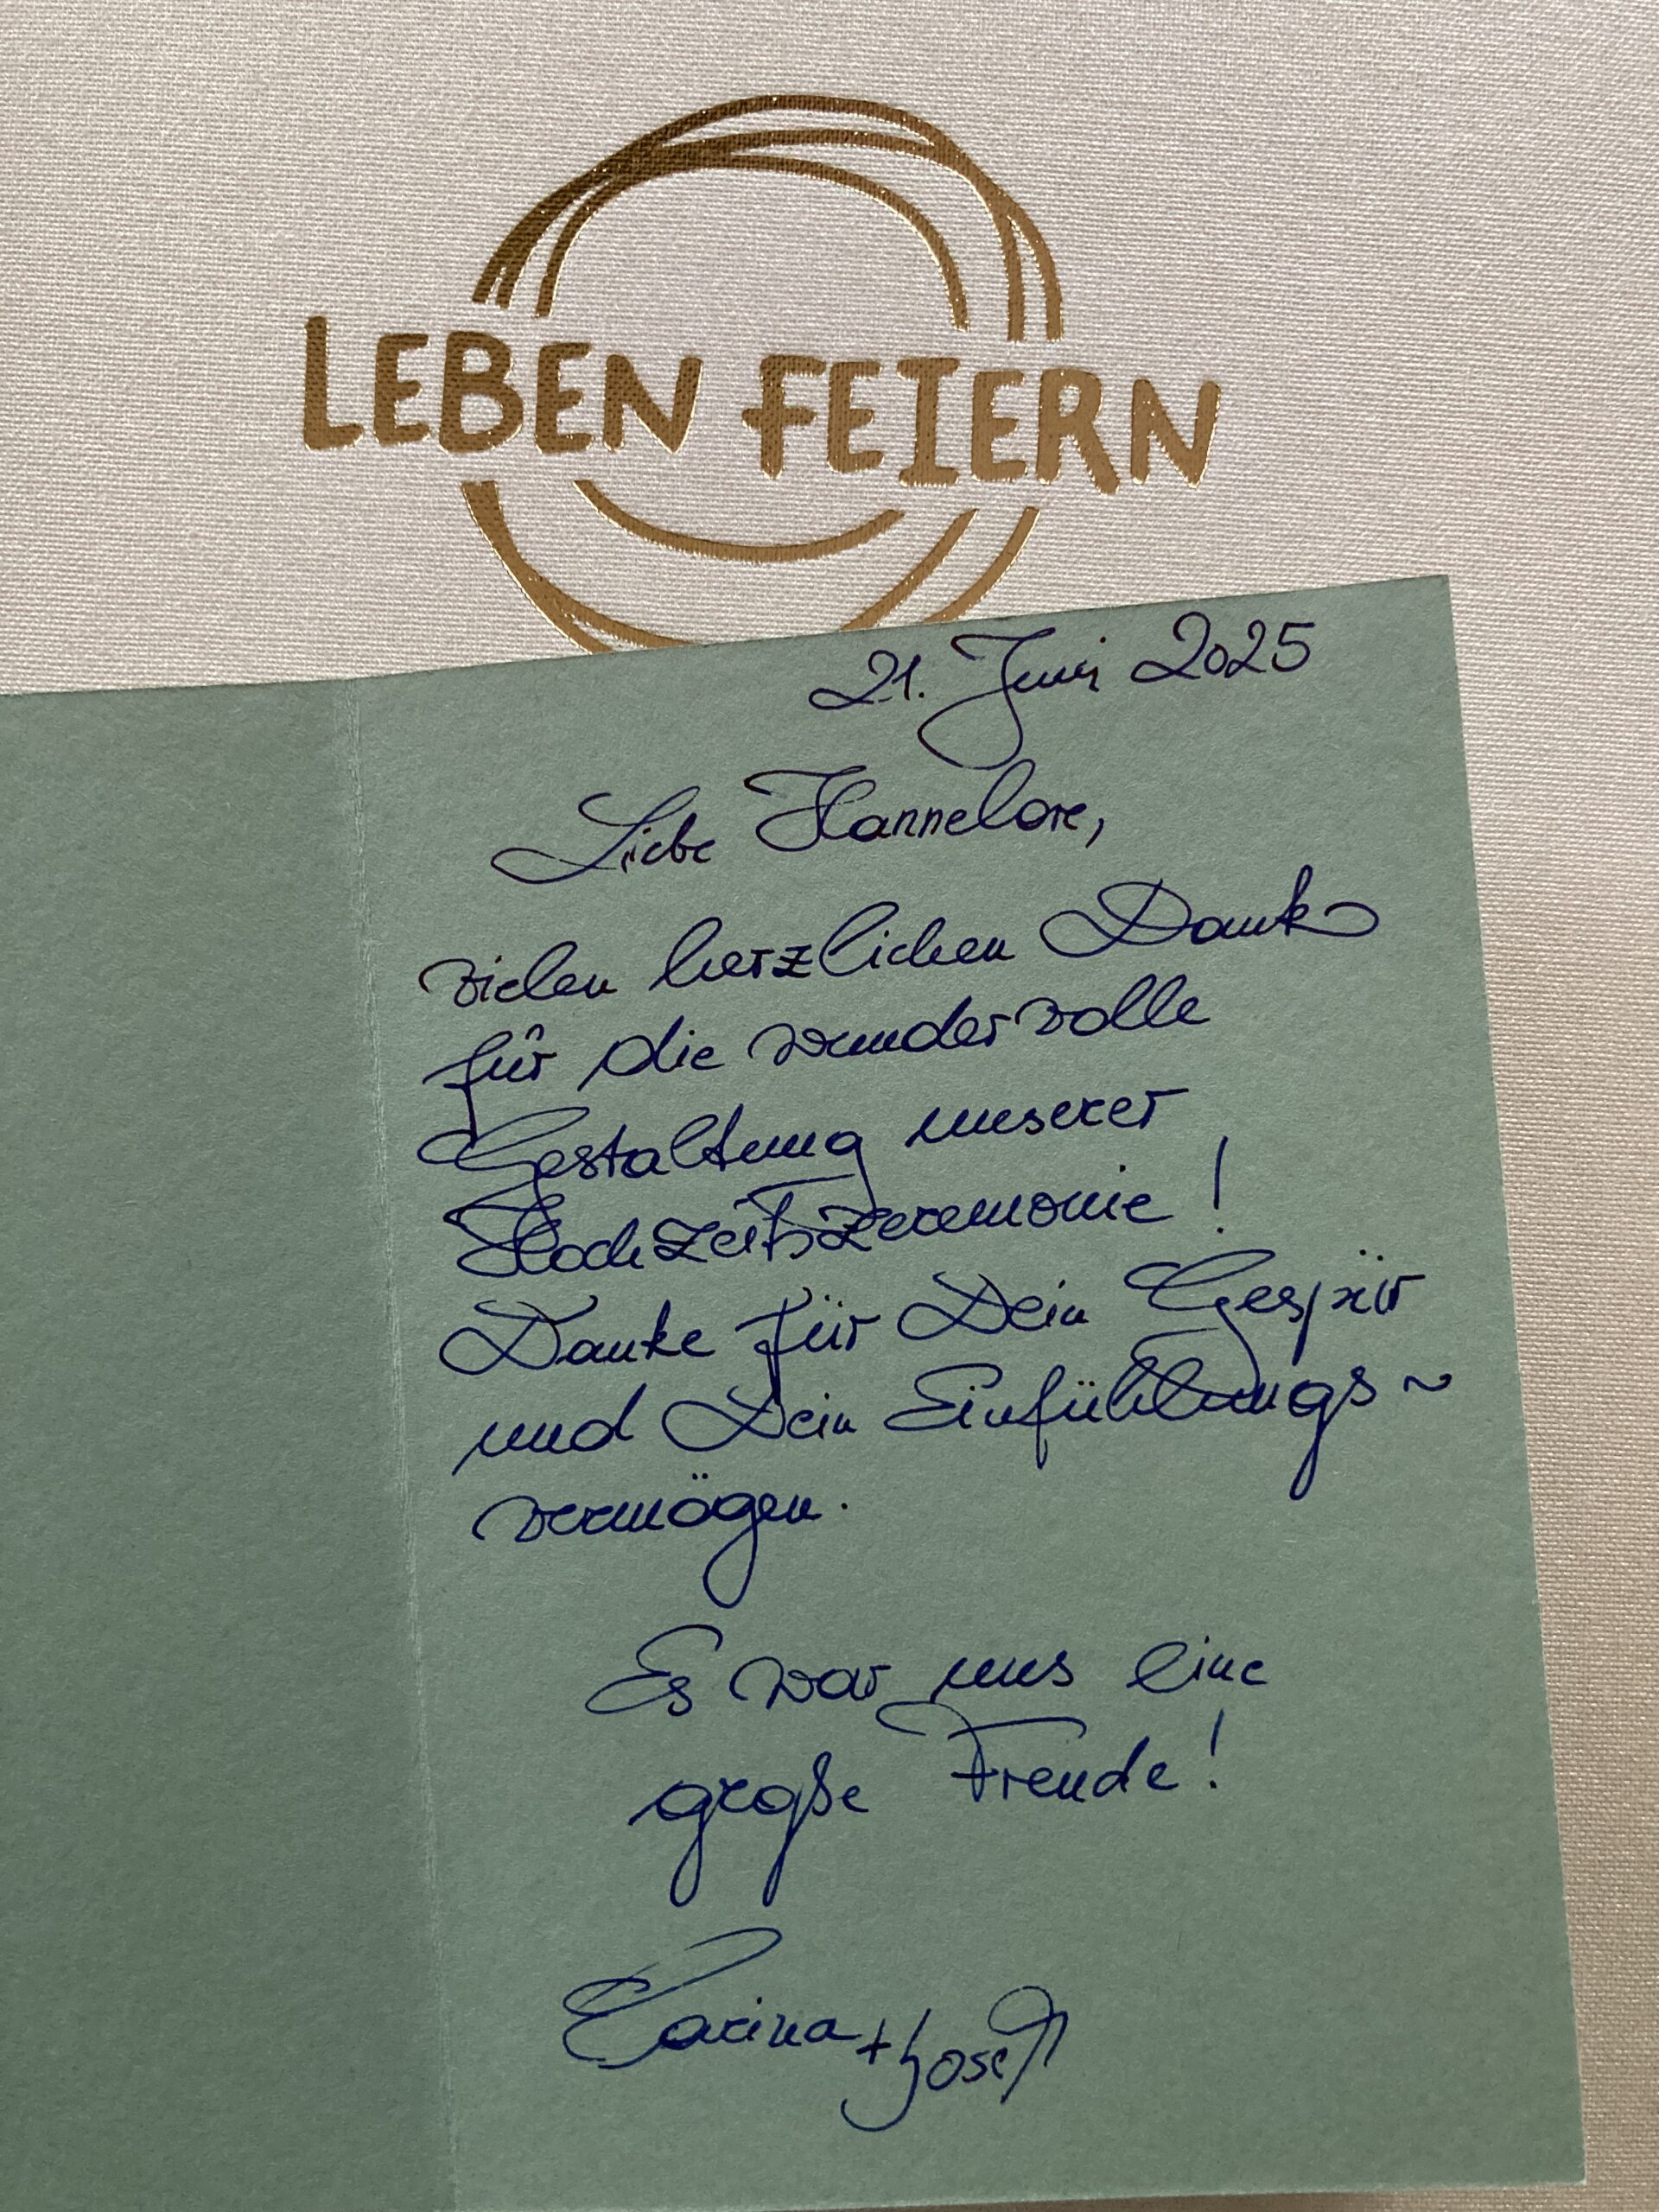 LEBEN FEIERN
21. Juni 2025
Liebe Hannelore,
vielen herzlichen Dank
für die wundervolle
Gestaltung unserer
Hochzeitszeremonie!
Danke für Dein Gespür
und Dein Einfühlungs~
vermögen.
Es war uns eine
große Freude!
Carina + Josef